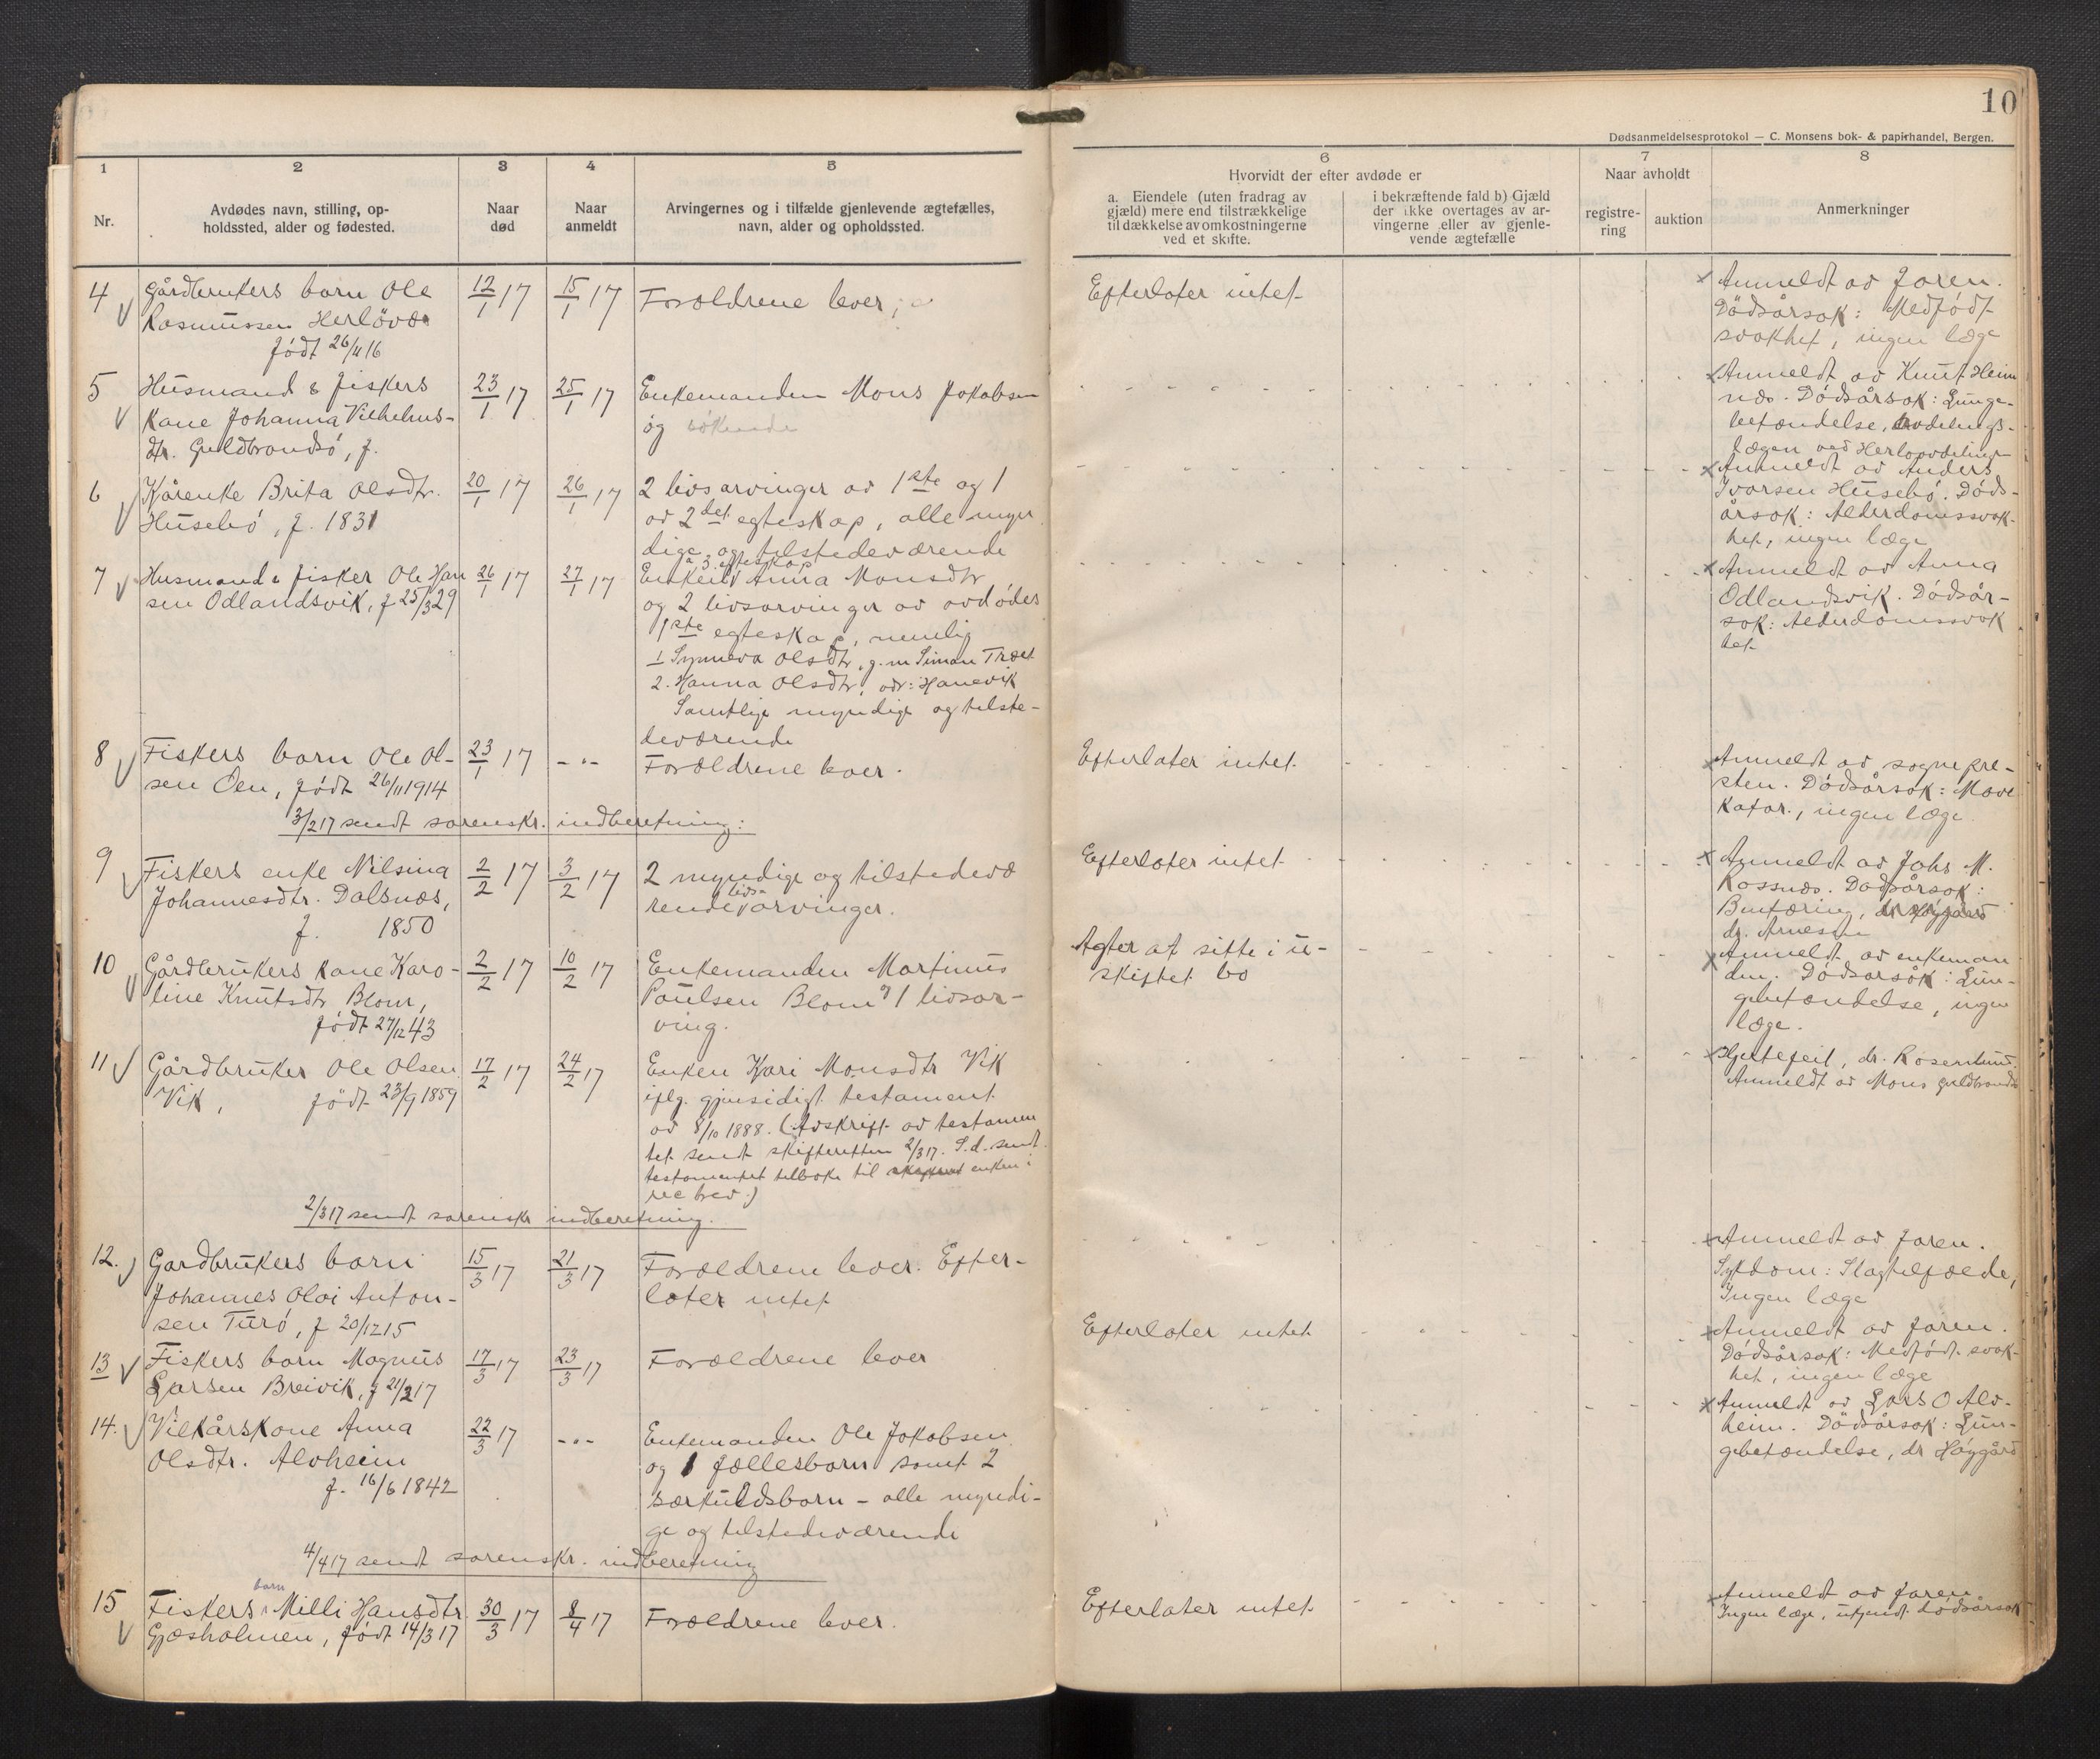 10
Dødsanmeldelsesprotokol — C. Monsens bok- & papirhandel, Bergen.
1
Nr.
2
Avdødes navn, stilling, op-
holdssted, alder og fødested.
3
Naar
død
4
Naar
anmeldt
5
Arvingernes og i tilfælde gjenlevende ægtefælles,
navn, alder og opholdssted.
6
Hvorvidt der efter avdøde er
a. Eiendele (uten fradrag av
gjæld) mere end tilstrækkelige
til dækkelse av omkostningerne
ved et skifte.
i bekræftende fald b) Gjæld
der ikke overtages av ar-
vingerne eller av gjenle-
vende ægtefælle
7
Naar avholdt
registre-
ring
auktion
8
Anmerkninger
4
Gårdbrukers barn Ole
Rasmussen Herlövær
født 26/11 16
12/1 17
15/1 17
Forældrene lever
Efterlater intet
Anmeldt av faren.
Dödsårsak: Medfødt
svakhet, ingen læge
5
Husmand & fiskers
kone Johanna Vilhelms-
dtr. Guldbrandsö, f.
23/1 17
25/1 17
Enkemanden Mons Jakobsen
og
Anmeldt av Knut Heim
næs. Dödsårsak: Lunge-
betændelse, avdelings-
lægen ved Herløavdelingen
6
Kårenke Brita Olsdtr.
Husebö, f. 1831
20/1 17
26/1 17
2 livsarvinger av 1ste og 1
av 2det egteskap, alle myn
dige og tilstedeværende
Anmeldt av Anders
Ivarsen Husebö. Döds-
årsak: Alderdomssvak-
het, ingen læge
7
Husmand & fisker Ole Han
sen Odlandsvik, f 25/3 29
26/1 17
27/1 17
a 3. egteskap
Enken Anna Monsdtr
og 2 livsarvinger av avdødes
1ste egteskap, nemlig
1 Synneva Olsdtr, g. m Simon Træet
2. Hanna Olsdtr, adr: Hanevik
Samtlige myndige og tilste-
deværende
Anmeldt av Anna
Odlandsvik. Dödsår-
sak: Alderdomssvak
het
8
Fiskers barn Ole Ol-
sen Öen, født 26/11 1914
23/1 17
- " -
Forældrene lever.
Efterlater intet
Anmeldt av sognepre-
sten. Dödsårsak: Mave
katar, ingen læge
3/2 17 sendt sorenskr. indberetning:
9
Fiskers enke Nilsina
Johannesdtr. Dalsnæs,
f. 1850
2/2 17
3/2 17
2 myndige og tilstedevæ
rende livsarvinger.
Efterlater intet
Anmeldt av Johs M.
Rossnæs. Dödsårsak:
dr. Arnesen
10
Gårdbrukers kone Karo-
line Knutsdtr Blom,
født 27/12 43
2/2 17
10/2 17
Enkemanden Martinus
Paulsen Blom og 1 livsar-
ving.
Agter at sitte i u-
skiftet bo
Anmeldt av enkeman
den. Dödsarsåk: Lun-
gebetændelse, ingen
læge.
11
Gårdbruker Ole Olsen
Vik, født 23/9 1859
17/2 17
24/2 17
Enken Kari Monsdtr Vik
iflg. gjensidigt testament
av 8/10 1888. (Avskrift av testamen
tet sendt skifteretten 2/3 17. S.d. sendt
testamentet tilbake til enken i
rec brev.)
Hjertefeil, dr. Rosenlund.
Anmeldt av Mons Guldbrandsö
2/3 17 sendt sorenskr indberetning.
12.
Gardbrukers barn
Johannes Olai Anton-
sen Turö, f 20/12 15
15/3 17
21/3 17
Forældrene lever. Efter-
later intet
Anmeldt av faren.
Sykdom: Slagtilfælde,
Ingen læge
13
Fiskers barn Magnus
Larsen Breivik, f 21/2 17
17/3 17
23/3 17
Forældrene lever
Efterlater intet
Anmeldt av faren.
Dödsårsak: Medfödt svak-
het, ingen læge
14.
Vilkårskone Anna
Olsdtr. Alvheim
f. 16/6 1842
22/3 17
- " -
Enkemanden Ole Jakobsen
og 1 fællesbarn samt 2
særkuldsbarn - alle myndi-
ge og tilstedeværende
Anmeldt av Lars O Alv-
heim. Dödsårsak: Lun-
gebetændelse, dr Höygård
4/4 17 sendt sorenskr. indberetning
15
Fiskers barn Milli Hansdtr
Gjæsholmen, født 14/3 17
30/3 17
8/4 17
Forældrene lever.
Efterlater intet
Anmeldt av faren
Ingen læge, ukjendt dødsårsak